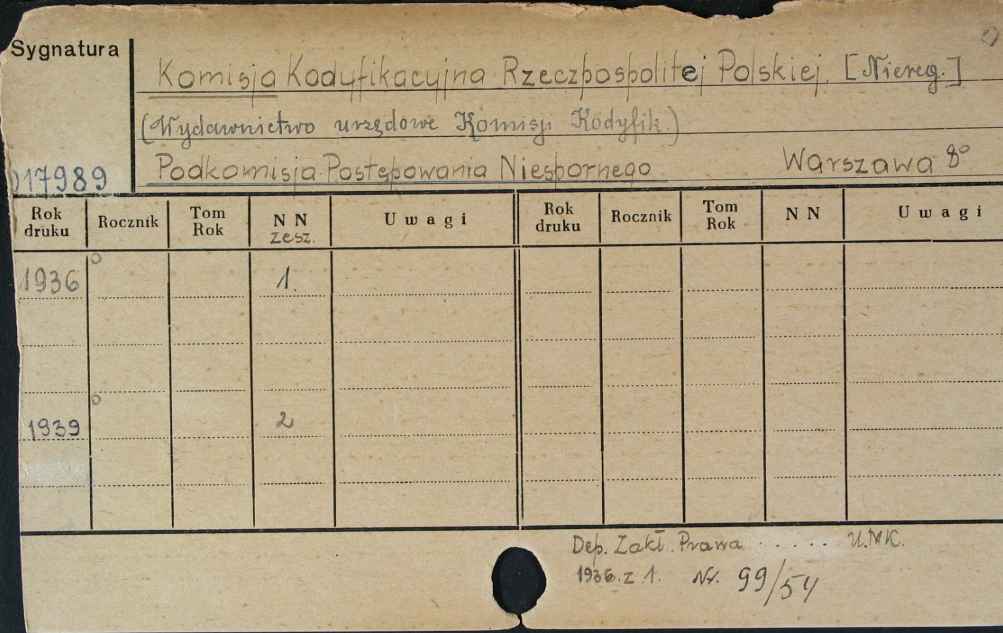 Sygnatura
Komisja Kodyfikacyjna Rzeczpospolitej Polskiej. [Niereg.]
(Wydawnictwo urzędowe Komisji Kodyfik.)
Podkomisja Postępowania Niespornego Warszawa 8°
017989
Rok druku Rocznik Tom Rok NN zesz. Uwagi Rok druku Rocznik Tom Rok NN Uwagi
1936 1.
1939 2
Dep. Zakł. Prawa ..... U.M.K.
1936. z 1. Nr. 99/54